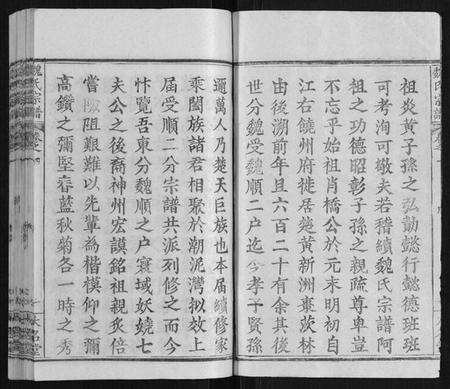 祖炎黃子孫之弘勳懿行懿德班班
可考洵可敬夫若稽績魏氏宗譜阿
祖之功德昭彰子孫之親疏尊卑豈
不忘乎始祖肖橋公於元末明初自
江右饒州府徙居楚黃新洲棗茨林
由後溯前年且六百二十有余其後
世分魏受魏順二户迄今孝子賢孫
邇萬人乃楚天巨族也本届續修家
乘闔族諸君相聚於潮泥灣拟效上
届受順二分宗譜共派列修之而今
忭覽吾東分魏順之户寰域妖嬈七
夫公之後裔神州宏謨銘祖親炙倍
嘗 阻艱難以先輩為楷模仰之彌
高鑽之彌堅春藍秋菊各一時之秀
魏氏宗譜